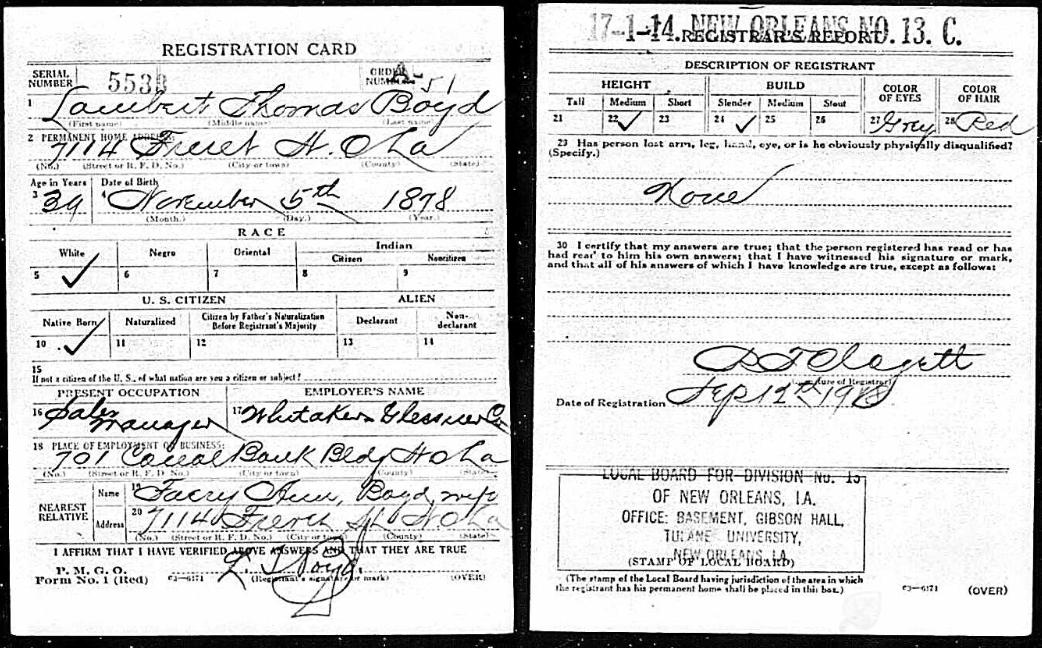 REGISTRATION CARD
SERIAL NUMBER 5533 ORDER NUMBER A-51
1 Lambert Thomas Boyd
(First name) (Middle name) (Last name)
2 PERMANENT HOME ADDRESS:
7114 Freret St. N O La
(No.) (Street or R. F. D. No.) (City or town) (County) (State)
Age in Years Date of Birth
3 39 4 November 5th 1878
(Month.) (Day.) (Year.)
RACE
White Negro Oriental Indian
Citizen Noncitizen
5 ✓ 6 7 8 9
U. S. CITIZEN ALIEN
Native Born Naturalized Citizen by Father's Naturalization Before Registrant's Majority Declarant Non-declarant
10 ✓ 11 12 13 14
15
If not a citizen of the U. S., of what nation are you a citizen or subject?
PRESENT OCCUPATION EMPLOYER'S NAME
16 Sales Manager 17 Whitaker Glessner Co
18 PLACE OF EMPLOYMENT OR BUSINESS:
701 Canal Bank Bldg N O La
(No.) (Street or R. F. D. No.) (City or town) (County) (State)
NEAREST RELATIVE
Name 19 Ann, Boyd, wife
Address 20 7114 St N O La
(No.) (Street or R. F. D. No.) (City or town) (County) (State)
I AFFIRM THAT I HAVE VERIFIED ABOVE ANSWERS AND THAT THEY ARE TRUE
P. M. G. O.
Form No. 1 (Red) 03—6171 (Registrant's signature or mark) (OVER)
L. T. Boyd
17-1-14. NEW ORLEANS NO. 13. C.
REGISTRAR'S REPORT
DESCRIPTION OF REGISTRANT
HEIGHT BUILD COLOR OF EYES COLOR OF HAIR
Tall Medium Short Slender Medium Stout
21 22 ✓ 23 24 ✓ 25 26 27 Grey 28 Red
29 Has person lost arm, leg, hand, eye, or is he obviously physically disqualified?
(Specify.)
None
30 I certify that my answers are true; that the person registered has read or has
had read to him his own answers; that I have witnessed his signature or mark,
and that all of his answers of which I have knowledge are true, except as follows:
Clagett
(Signature of Registrar)
Date of Registration Sep 12th 1918
LOCAL BOARD FOR DIVISION No. 13
OF NEW ORLEANS, LA.
OFFICE: BASEMENT, GIBSON HALL,
TULANE UNIVERSITY,
NEW ORLEANS, LA.
(STAMP OF LOCAL BOARD)
(The stamp of the Local Board having jurisdiction of the area in which
the registrant has his permanent home shall be placed in this box.)
03—6171 (OVER)